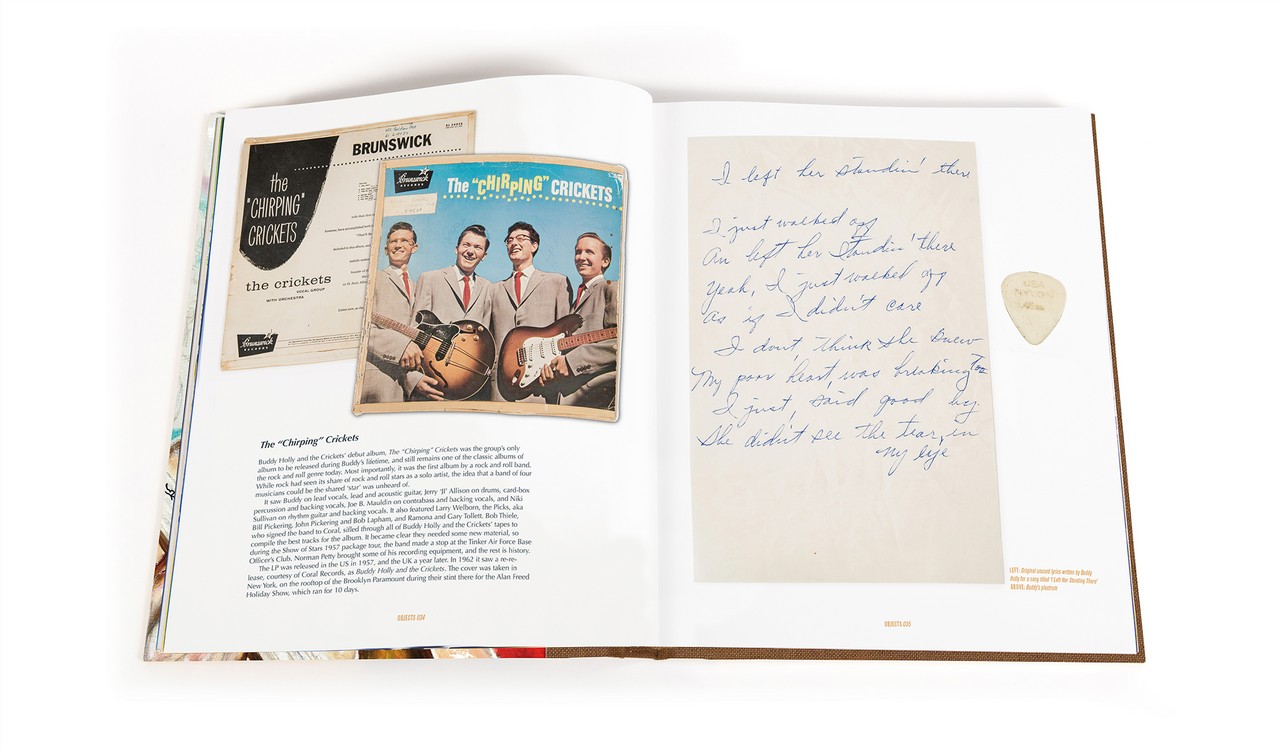 BRUNSWICK
the
"CHIRPING"
CRICKETS
the crickets
VOCAL GROUP
WITH ORCHESTRA
Brunswick
RECORDS
Brunswick
RECORDS
The "CHIRPING" CRICKETS
The "Chirping" Crickets
Buddy Holly and the Crickets' debut album, The "Chirping" Crickets was the group's only
album to be released during Buddy's lifetime, and still remains one of the classic albums of
the rock and roll genre today. Most importantly, it was the first album by a rock and roll band.
While rock had seen its share of rock and roll stars as a solo artist, the idea that a band of four
musicians could be the shared 'star' was unheard of.
It saw Buddy on lead vocals, lead and acoustic guitar, Jerry 'JI' Allison on drums, card-box
percussion and backing vocals, Joe B. Mauldin on contrabass and backing vocals, and Niki
Sullivan on rhythm guitar and backing vocals. It also featured Larry Welborn, the Picks, aka
Bill Pickering, John Pickering and Bob Lapham, and Ramona and Gary Tollett. Bob Thiele,
who signed the band to Coral, sifted through all of Buddy Holly and the Crickets' tapes to
compile the best tracks for the album. It became clear they needed some new material, so
during the Show of Stars 1957 package tour, the band made a stop at the Tinker Air Force Base
Officer's Club. Norman Petty brought some of his recording equipment, and the rest is history.
The LP was released in the US in 1957, and the UK a year later. In 1962 it saw a re-re-
lease, courtesy of Coral Records, as Buddy Holly and the Crickets. The cover was taken in
New York, on the rooftop of the Brooklyn Paramount during their stint there for the Alan Freed
Holiday Show, which ran for 10 days.
OBJECTS 034
I left her standin' there
I just walked off
An left her standin' there
Yeah, I just walked off
As if I didn't care
I don't think she knew
My poor heart, was breaking too
I just, said good by
She didn't see the tear, in
my eye
USA
NYLON
LEFT: Original unused lyrics written by Buddy
Holly for a song titled 'I Left Her Standing There'
ABOVE: Buddy's plectrum
OBJECTS 035